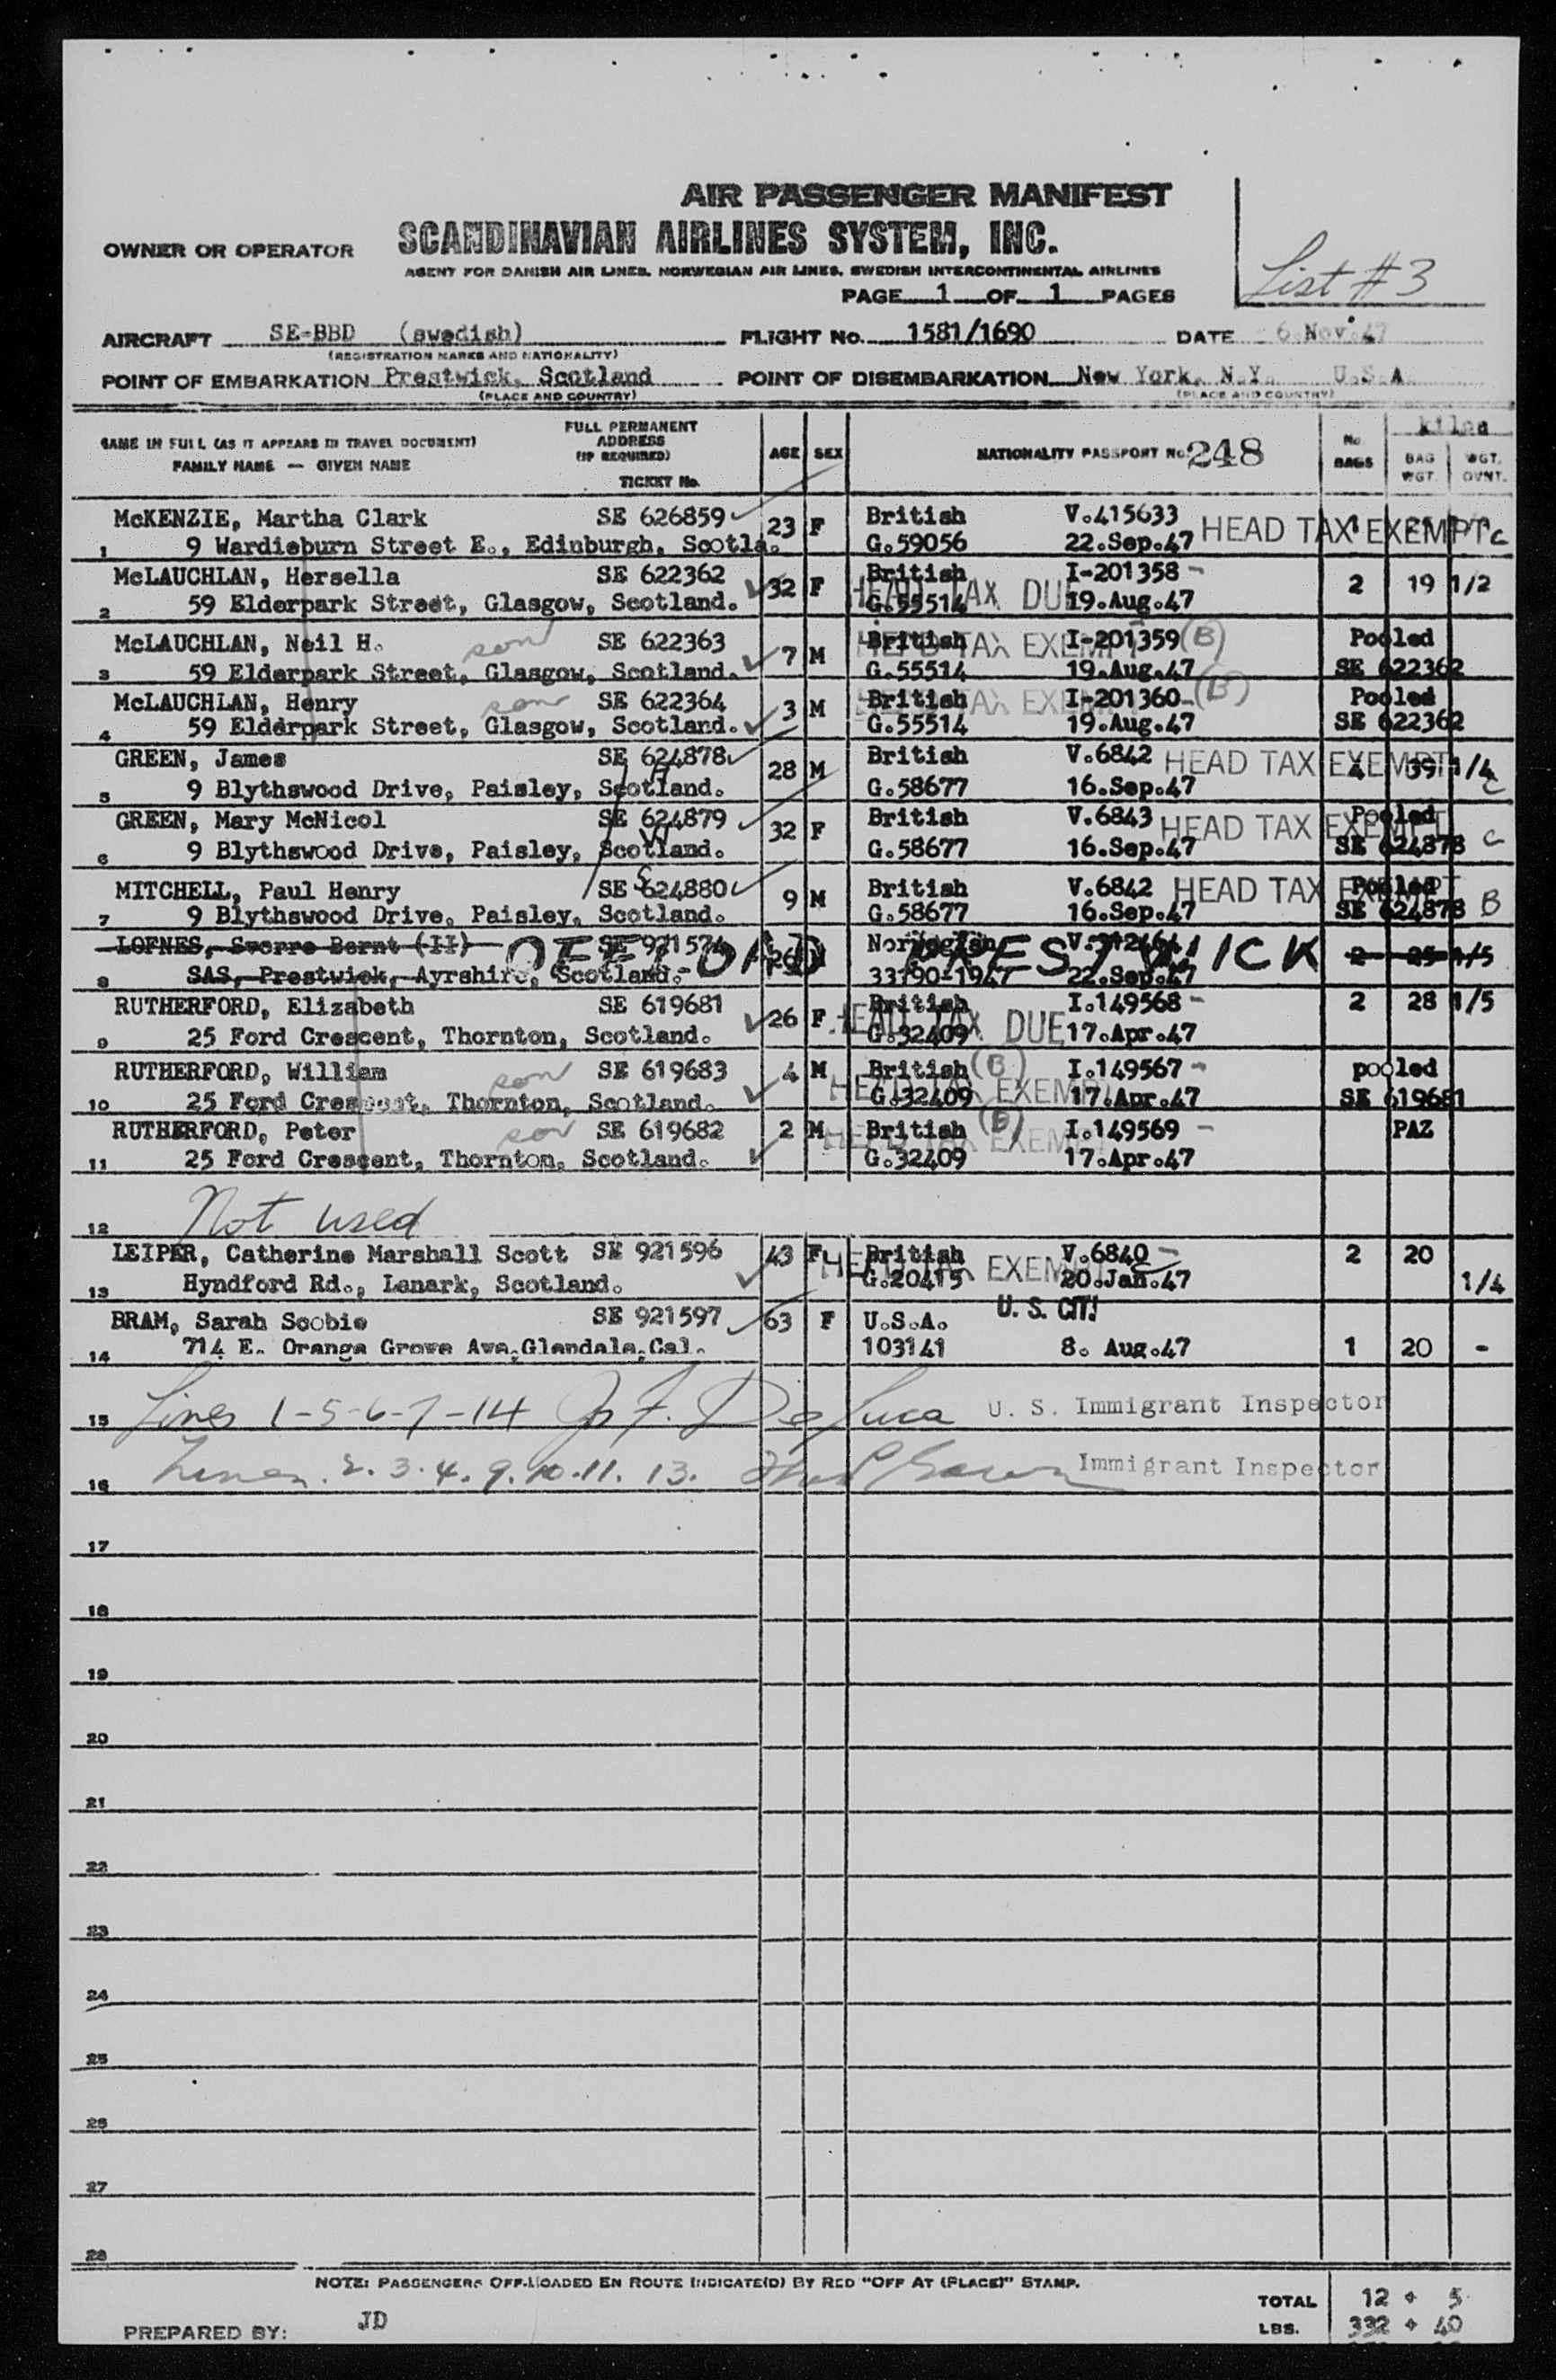 AIR PASSENGER MANIFEST
OWNER OR OPERATOR SCANDINAVIAN AIRLINES SYSTEM, INC.
AGENT FOR DANISH AIR LINES, NORWEGIAN AIR LINES, SWEDISH INTERCONTINENTAL AIRLINES
List #3
PAGE 1 OF 1 PAGES
AIRCRAFT SE-BBD (swedish) FLIGHT No. 1581/1690 DATE 6 Nov. 47
(REGISTRATION MARKS AND NATIONALITY)
POINT OF EMBARKATION Prestwick, Scotland POINT OF DISEMBARKATION New York, N.Y. U.S.A.
(PLACE AND COUNTRY) (PLACE AND COUNTRY)
NAME IN FULL (AS IT APPEARS IN TRAVEL DOCUMENT) FAMILY NAME — GIVEN NAME
FULL PERMANENT ADDRESS (IF REQUIRED) TICKET No.
AGE SEX NATIONALITY PASSPORT No. 248 No. BAGS BAG WGT. WGT. OVNT.
McKENZIE, Martha Clark SE 626859 23 F British V.415633 HEAD TAX EXEMPT c
1 9 Wardieburn Street E., Edinburgh, Scotla. G.59056 22.Sep.47
McLAUCHLAN, Hersella SE 622362 32 F British I-201358 - HEAD TAX DUE 2 19 1/2
2 59 Elderpark Street, Glasgow, Scotland. G.55514 19.Aug.47
McLAUCHLAN, Neil H. son SE 622363 7 M British I-201359 (B) HEAD TAX EXEMPT Pooled
3 59 Elderpark Street, Glasgow, Scotland. G.55514 19.Aug.47 SE 622362
McLAUCHLAN, Henry son SE 622364 3 M British I-201360- (B) HEAD TAX EXEMPT Pooled
4 59 Elderpark Street, Glasgow, Scotland. G.55514 19.Aug.47 SE 622362
GREEN, James SE 624878 28 M British V.6842 HEAD TAX EXEMPT 4 39 1/4
5 9 Blythswood Drive, Paisley, Scotland. H G.58677 16.Sep.47 c
GREEN, Mary McNicol SE 624879 32 F British V.6843 HEAD TAX EXEMPT Pooled
6 9 Blythswood Drive, Paisley, Scotland. W G.58677 16.Sep.47 SE 624878 c
MITCHELL, Paul Henry S SE 624880 9 M British V.6842 HEAD TAX EXEMPT Pooled
7 9 Blythswood Drive, Paisley, Scotland. G.58677 16.Sep.47 SE 624878 B
LOFNES, Sverre Bernt (II) Norwegian 2 1/5
8 SAS, Prestwick, Ayrshire, Scotland. 33190-1947 22.Sep.47
OFF-LOAD PRESTWICK
RUTHERFORD, Elizabeth SE 619681 26 F British I.149568 - HEAD TAX DUE 2 28 1/5
9 25 Ford Crescent, Thornton, Scotland. G.32409 17.Apr.47
RUTHERFORD, William son SE 619683 4 M British (B) I.149567 - HEAD TAX EXEMPT pooled
10 25 Ford Crescent, Thornton, Scotland. G.32409 17.Apr.47 SE 619681
RUTHERFORD, Peter son SE 619682 2 M British (B) I.149569 - HEAD TAX EXEMPT PAZ
11 25 Ford Crescent, Thornton, Scotland. G.32409 17.Apr.47
12 Not used
LEIPER, Catherine Marshall Scott SE 921596 43 F British V.6840 - HEAD TAX EXEMPT 2 20
13 Hyndford Rd., Lanark, Scotland. G.20415 20.Jan.47 1/4
BRAM, Sarah Scobie SE 921597 63 F U.S.A. U. S. CIT!
14 714 E. Orange Grove Ave,Glendale,Cal. 103141 8. Aug.47 1 20 -
15 Lines 1-5-6-7-14 De Luca U. S. Immigrant Inspector
16 Lines. 2. 3. 4. 9. 10. 11. 13. Immigrant Inspector
17
18
19
20
21
22
23
24
25
26
27
28
NOTE: PASSENGERS OFF-LOADED EN ROUTE INDICATE(D) BY RED "OFF AT (PLACE)" STAMP.
TOTAL 12 + 5
PREPARED BY: JD LBS. 332 + 40